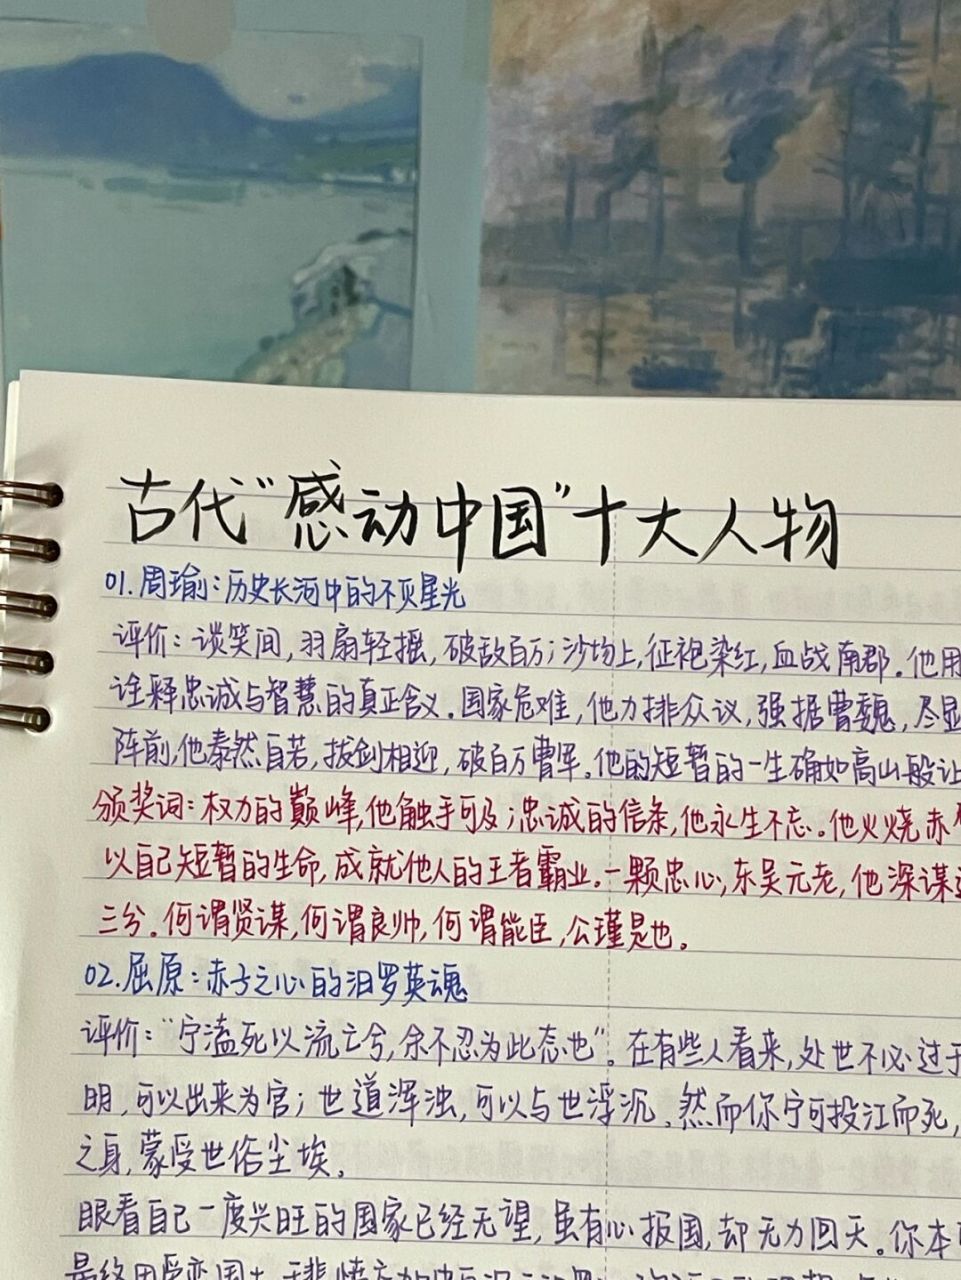 古代“感动中国”十大人物
01.周瑜:历史长河中的不灭星光
评价:谈笑间,羽扇轻摇,破敌百万;沙场上,征袍染红,血战南郡.他用
诠释忠诚与智慧的真正含义.国家危难,他力排众议,强据曹魏,尽显
阵前,他泰然自若,拔剑相迎,破百万曹军.他的短暂的一生确如高山般让
颁奖词:权力的巅峰,他触手可及;忠诚的信条,他永生不忘.他火烧赤
以自己短暂的生命,成就他人的王者霸业.一颗忠心,东吴元老,他深谋
三分.何谓贤谋,何谓良帅,何谓能臣,公瑾是也.
02.屈原:赤子之心的汨罗英魂
评价:“宁溘死以流亡兮,余不忍为此态也”.在有些人看来,处世不必过于
明,可以出来为官;世道浑浊,可以与世浮沉.然而你宁可投江而死,
之身,蒙受世俗尘埃.
眼看自己一度兴旺的国家已经无望,虽有心报国,却无力回天.你本